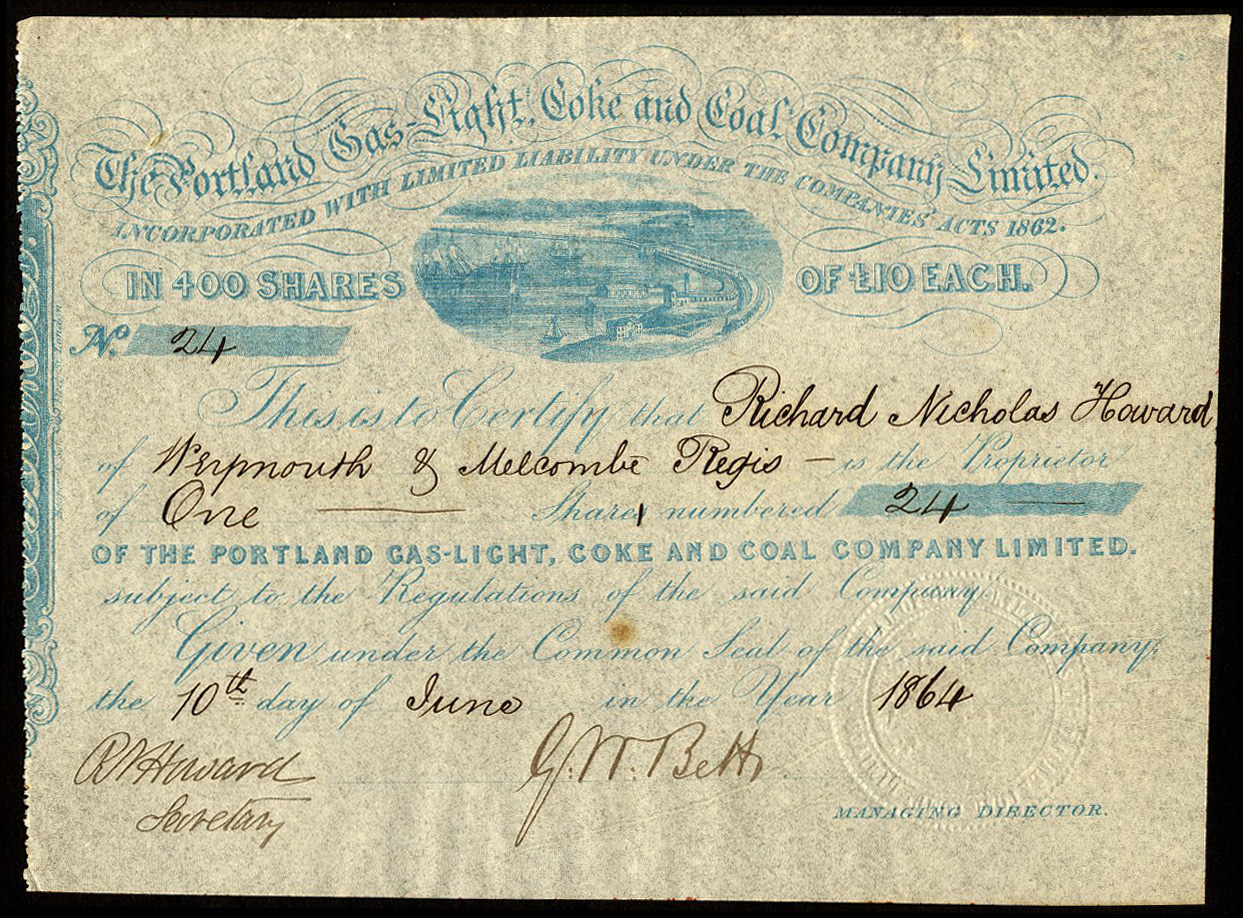 The Portland Gas-Light, Coke and Coal Company Limited.
INCORPORATED WITH LIMITED LIABILITY UNDER THE COMPANIES' ACTS 1862.
IN 400 SHARES OF £10 EACH.
No. 24
This is to Certify that Richard Nicholas Howard
of Weymouth & Melcombe Regis — is the Proprietor
of One — Share numbered 24 —
OF THE PORTLAND GAS-LIGHT, COKE AND COAL COMPANY LIMITED.
subject to the Regulations of the said Company.
Given under the Common Seal of the said Company,
the 10th day of June in the Year 1864
R N Howard G. W. Betts
Secretary
MANAGING DIRECTOR.